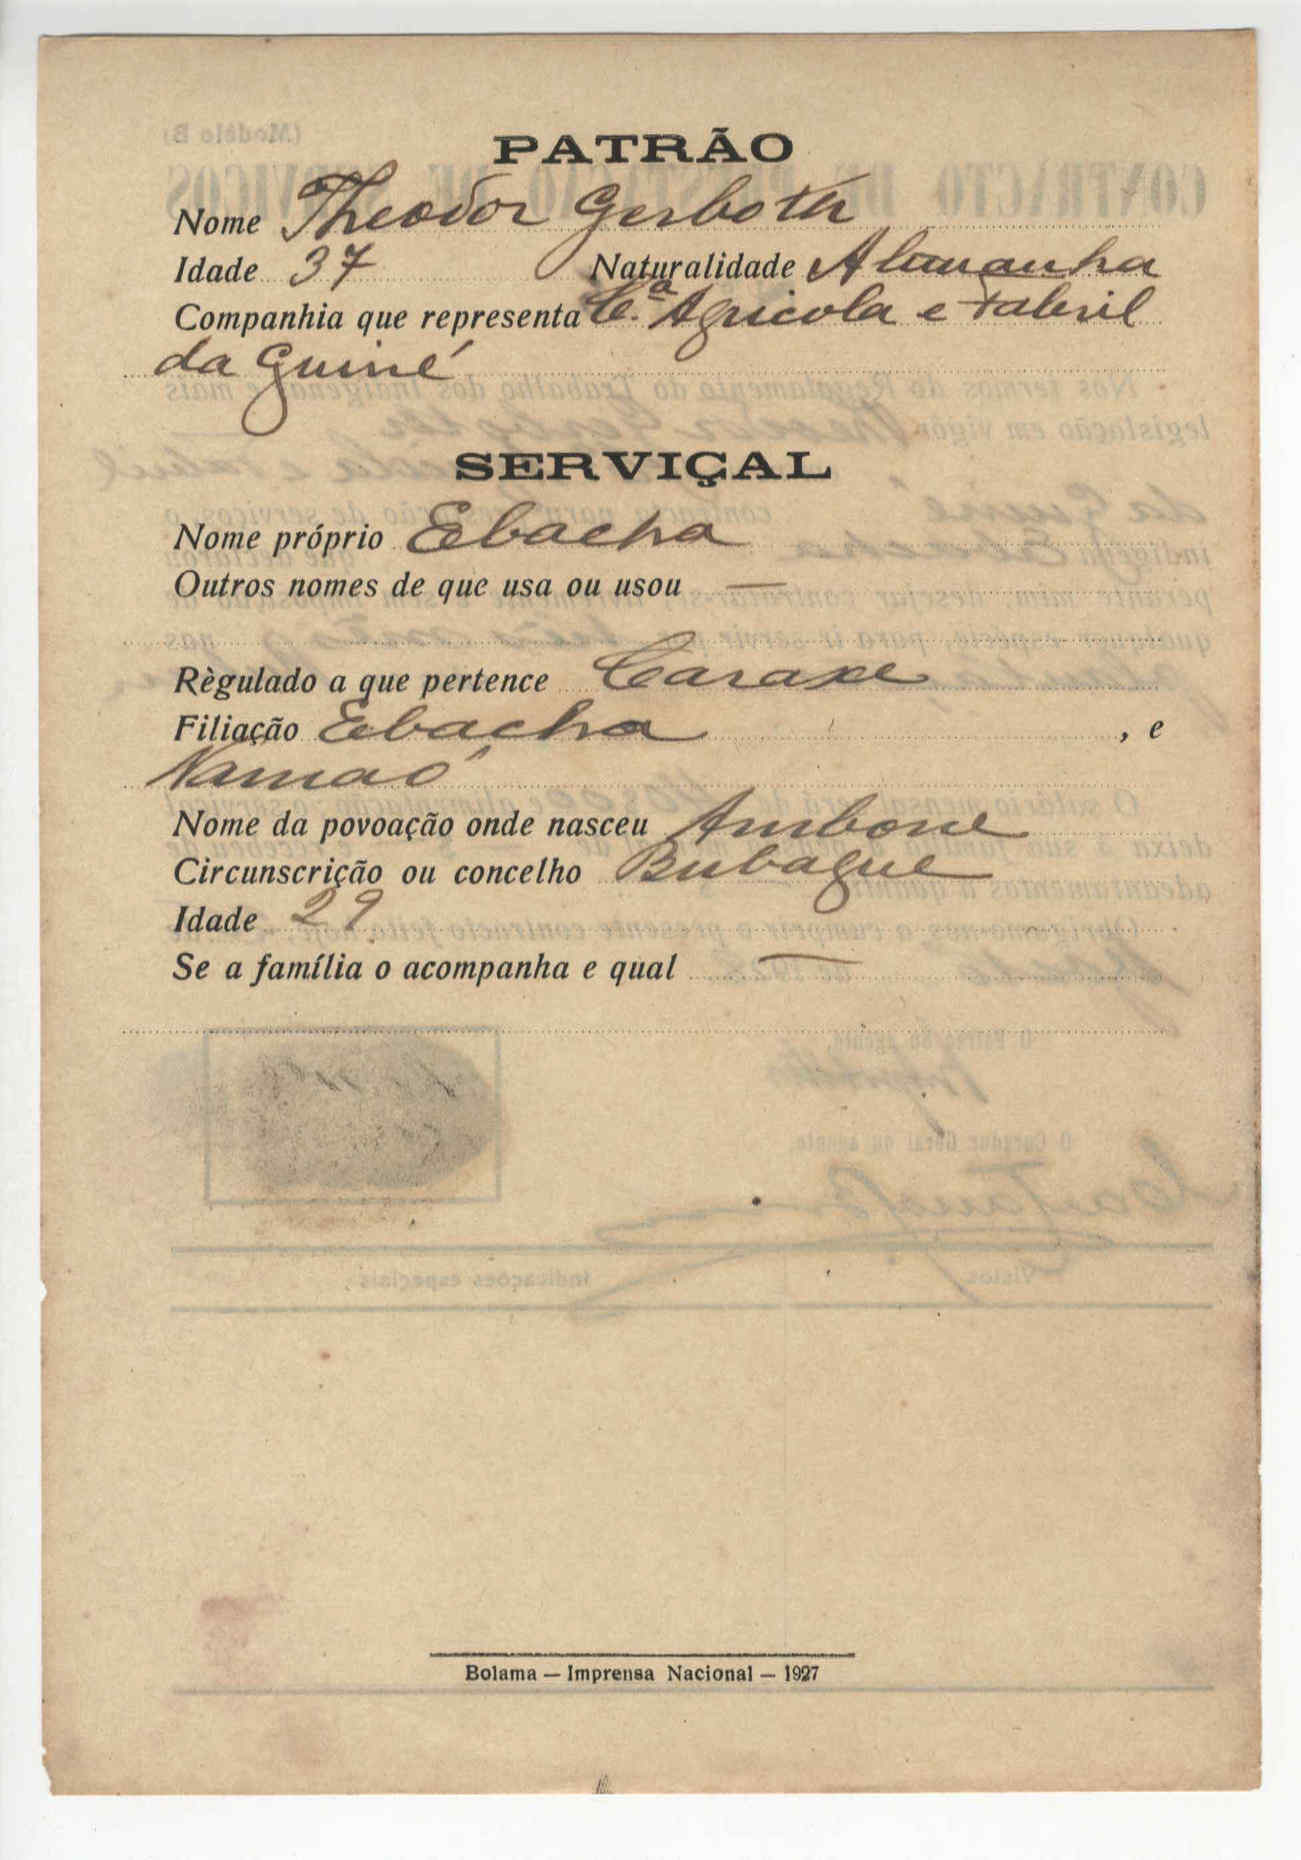 PATRÃO
Nome Theodor Gerboth
Idade 37 Naturalidade Alemanha
Companhia que representa C.ª Agricola e Fabril
da Guiné
SERVIÇAL
Nome próprio Ebacha
Outros nomes de que usa ou usou —
Règulado a que pertence Caraxe
Filiação Ebacha , e
Namaó
Nome da povoação onde nasceu Ambone
Circunscrição ou concelho Bubaque
Idade 29
Se a família o acompanha e qual —
Bolama — Imprensa Nacional — 1927